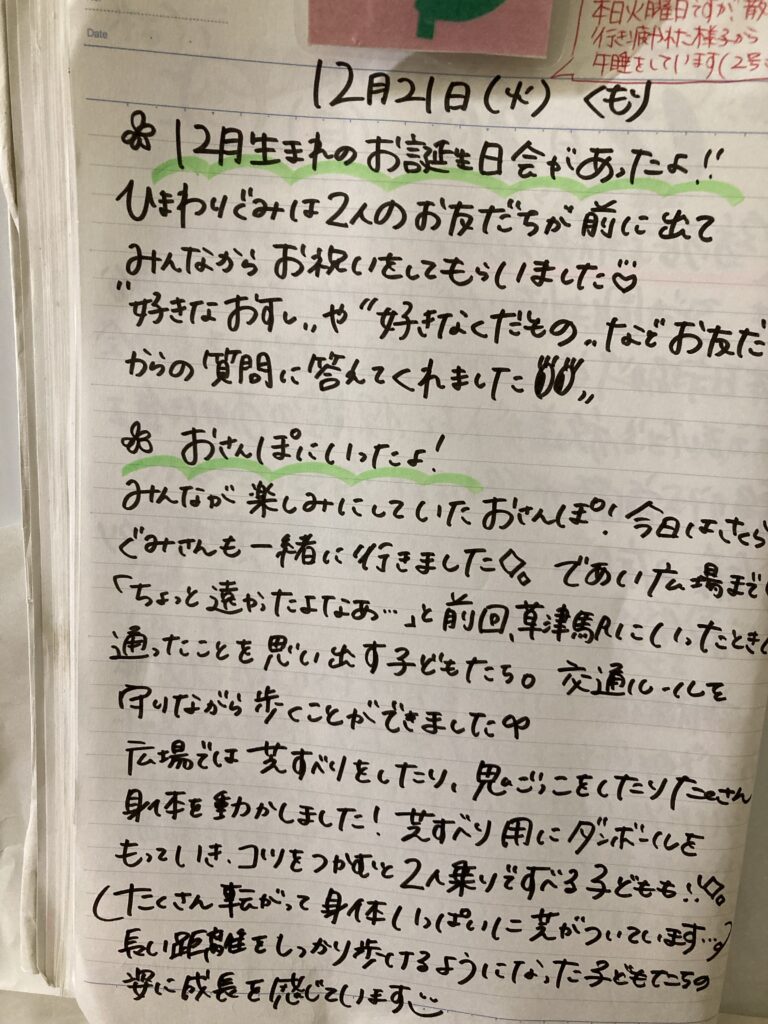 Date
本日火曜日ですが、散
行き疲れた様子から
午睡をしています(2号
12月21日(火) くもり
12月生まれのお誕生日会があったよ!!
ひまわりぐみは2人のお友だちが前に出て
みんなからお祝いをしてもらいました♡
〝好きなおすし〟や〝好きなくだもの〟などお友だ
からの質問に答えてくれました
おさんぽにいったよ!
みんなが楽しみにしていたおさんぽ!今日は、さくら
ぐみさんも一緒に行きました◇。であい広場まで
「ちょっと遠かったよなあ…」と前回、草津駅にいったとき
通ったことを思い出す子どもたち。交通ルールを
守りながら歩くことができました
広場では芝すべりをしたり、鬼ごっこをしたりたくさん
身体を動かしました!芝すべり用にダンボールを
もっていき、コツをつかむと2人乗りですべる子どもも!!◇。
(たくさん転がって身体いっぱいに芝がついています…)
長い距離をしっかり歩けるようになった子どもたちの
姿に成長を感じています